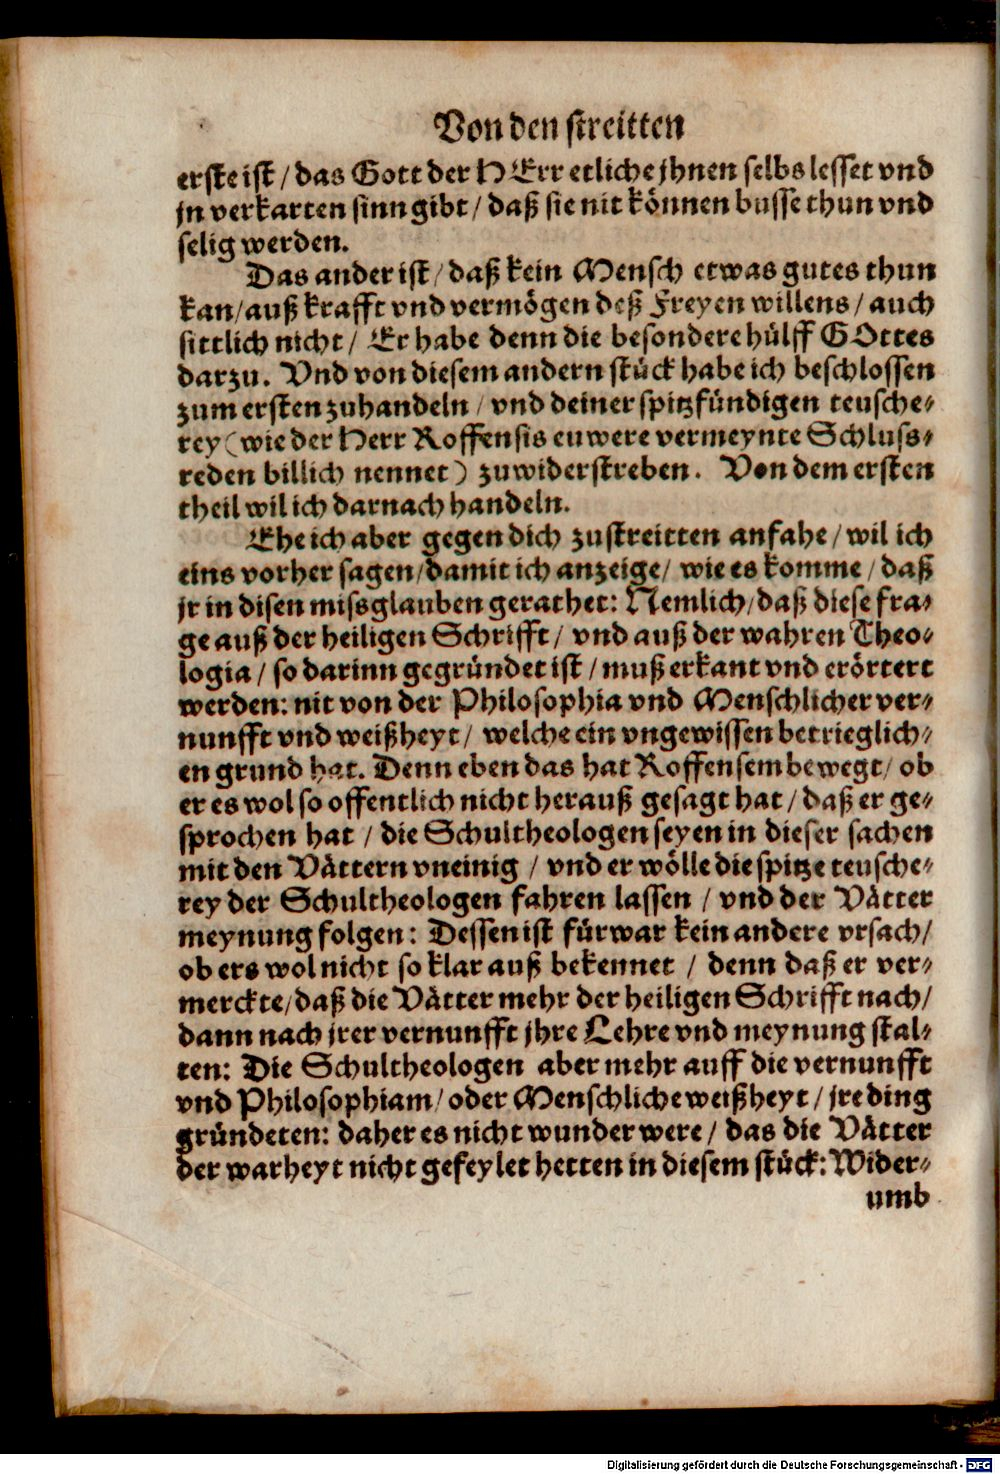 Von den streitten
erste ist / das Gott der HErr etliche jhnen selbs lesset vnd
jn verkarten sinn gibt / daß sie nit können busse thun vnd
selig werden.
Das ander ist / daß kein Mensch etwas gutes thun
kan / auß krafft vnd vermögen deß Freyen willens / auch
sittlich nicht / Er habe denn die besondere hülff GOttes
darzu. Vnd von diesem andern stück habe ich beschlossen
zum ersten zuhandeln / vnd deiner spitzfündigen teusche⸗
rey (wie der Herr Roffensis euwere vermeynte Schluss⸗
reden billich nennet) zuwiderstreben. Von dem ersten
theil wil ich darnach handeln.
Ehe ich aber gegen dich zustreitten anfahe / wil ich
eins vorher sagen / damit ich anzeige / wie es komme / daß
jr in disen missglauben gerathet: Nemlich / daß diese fra⸗
ge auß der heiligen Schrifft / vnd auß der wahren Theo⸗
logia / so darinn gegründet ist / muß erkant vnd erörtert
werden: nit von der Philosophia vnd Menschlicher ver⸗
nunfft vnd weißheyt / welche ein vngewissen betrieglich⸗
en grund hat. Denn eben das hat Roffensem bewegt / ob
er es wol so offentlich nicht herauß gesagt hat / daß er ge⸗
sprochen hat / die Schultheologen seyen in dieser sachen
mit den Vättern vneinig / vnd er wölle die spitze teusche⸗
rey der Schultheologen fahren lassen / vnd der Vätter
meynung folgen: Dessen ist fürwar kein andere vrsach /
ob ers wol nicht so klar auß bekennet / denn daß er ver⸗
merckte / daß die Vätter mehr der heiligen Schrifft nach /
dann nach jrer vernunfft jhre Lehre vnd meynung stal⸗
ten: Die Schultheologen aber mehr auff die vernunfft
vnd Philosophiam / oder Menschliche weißheyt / jre ding
gründeten: daher es nicht wunder were / das die Vätter
der warheyt nicht gefeylet hetten in diesem stück: Wider⸗
umb
Digitalisierung gefördert durch die Deutsche Forschungsgemeinschaft - DFG